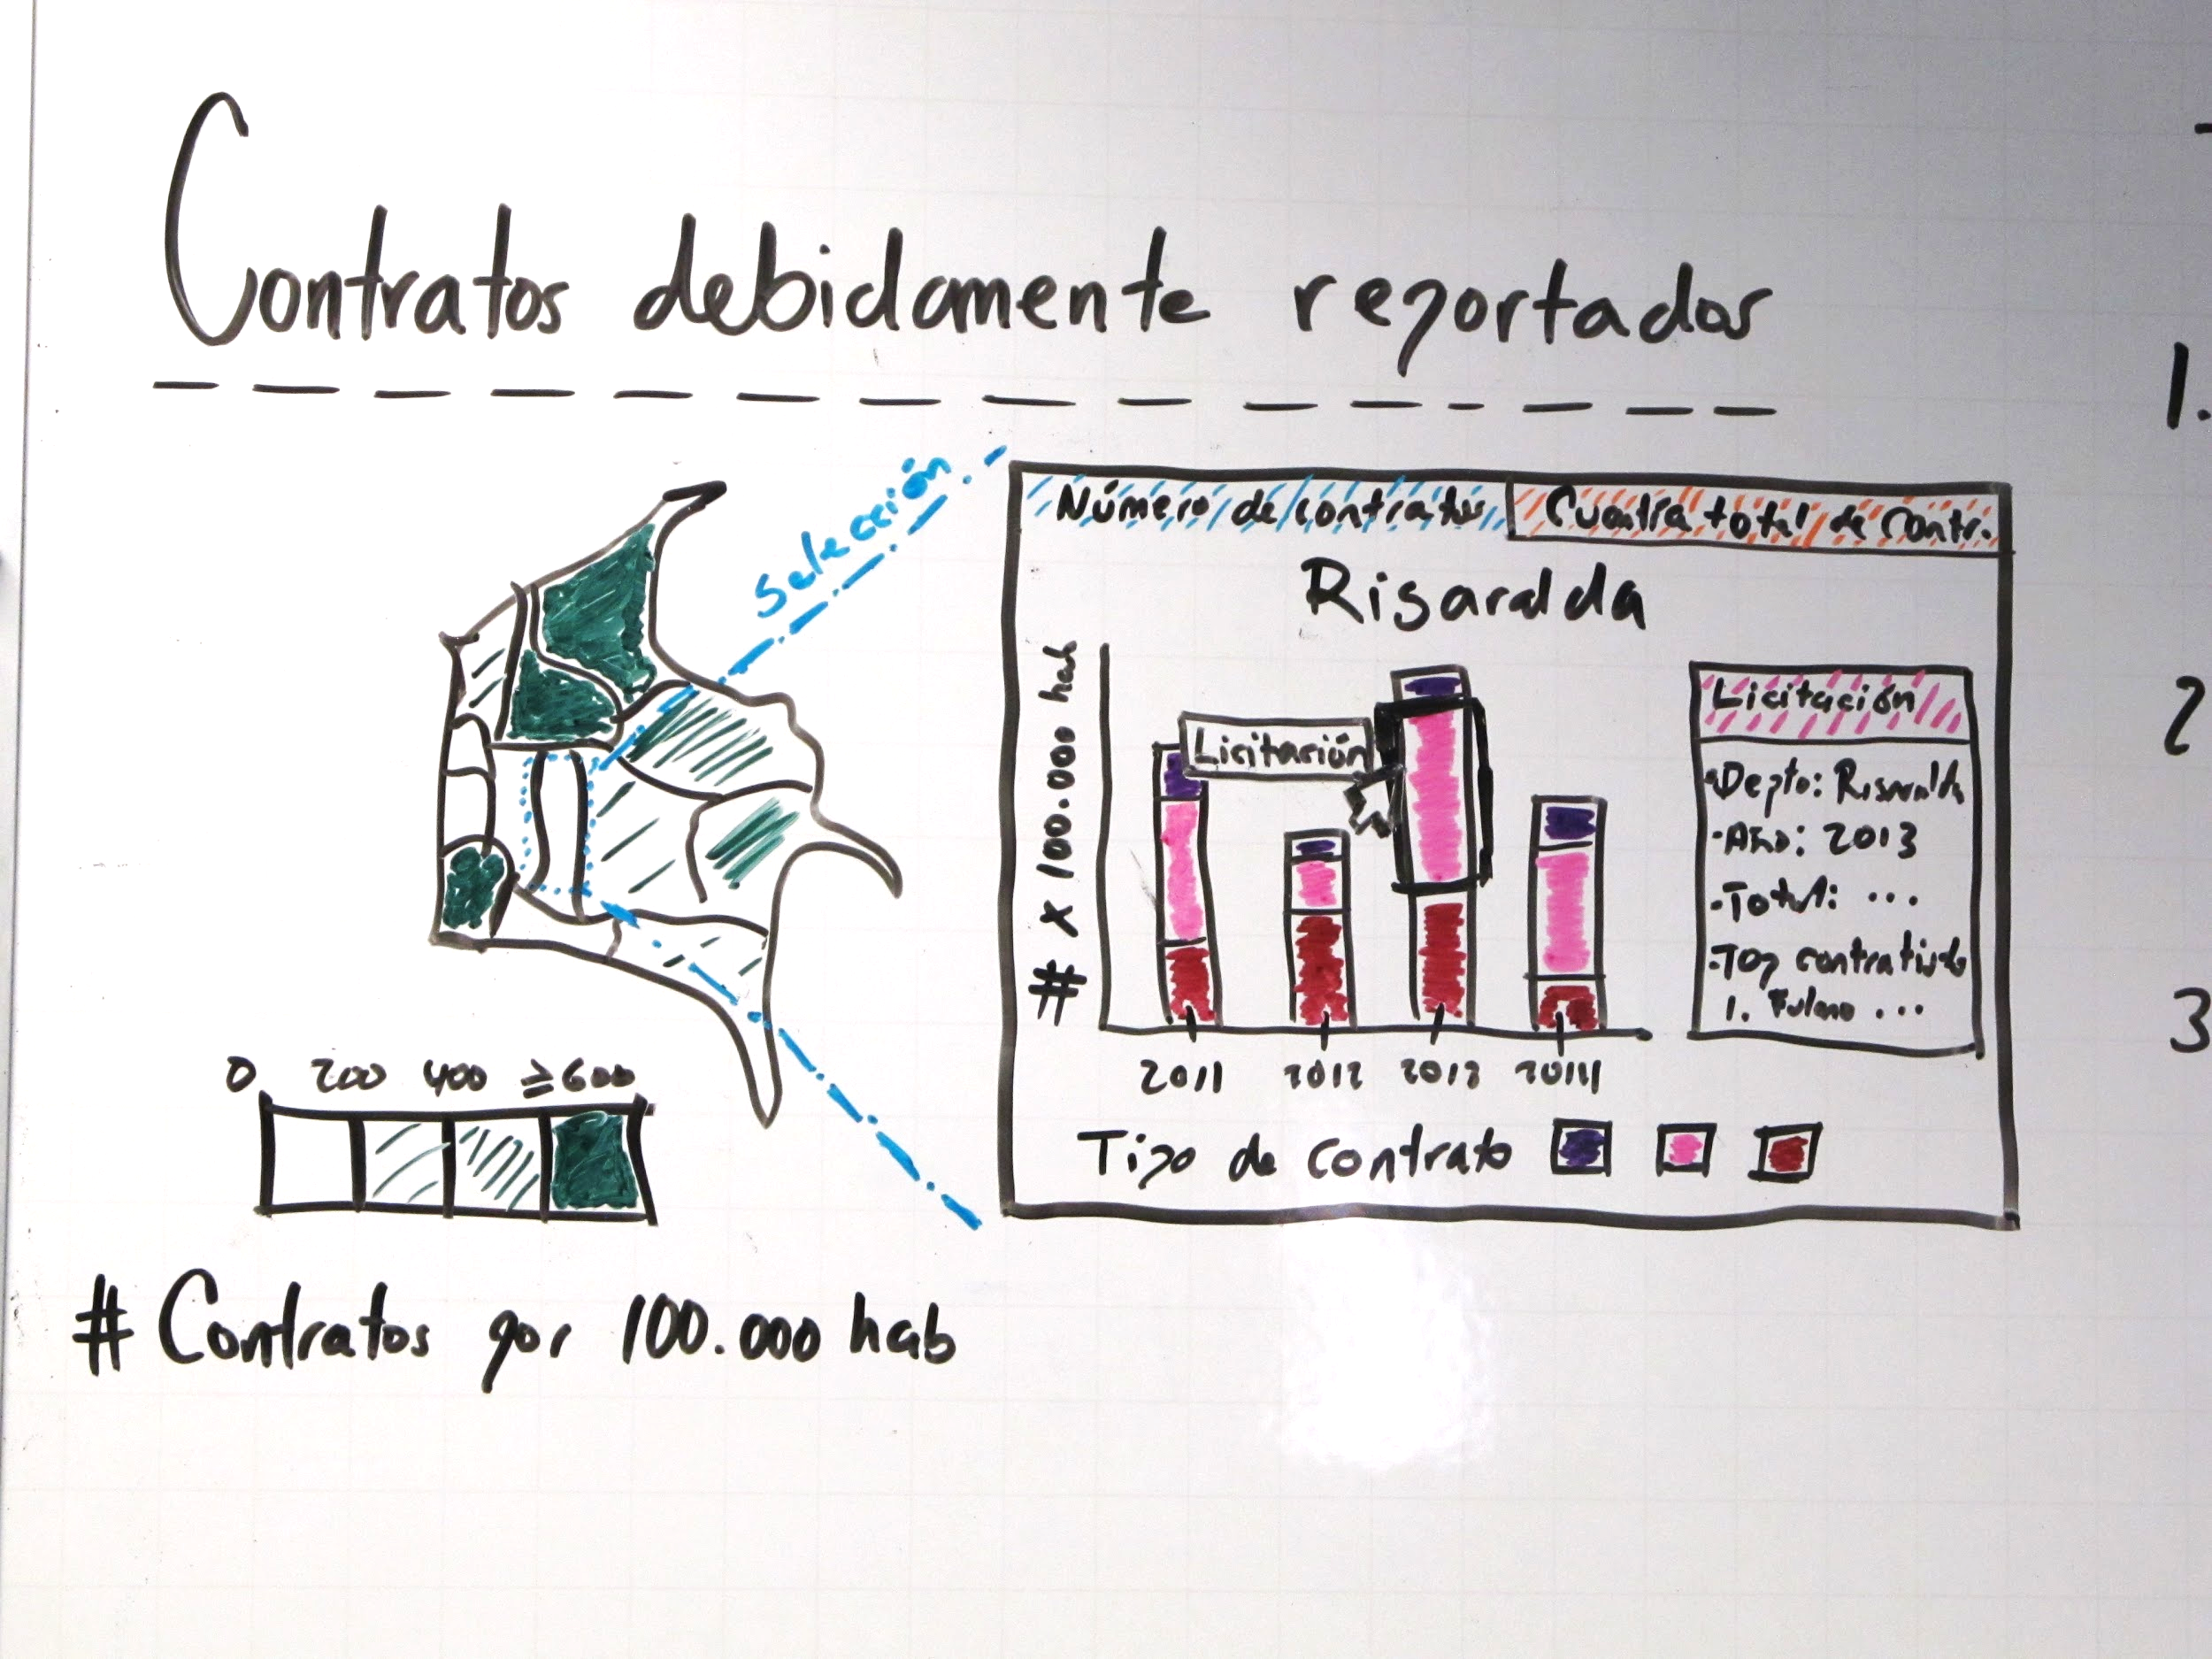 Contratos debidamente reportados
Selección
Número de contratos
Cuantía total de contr.
Risaralda
# x 100.000 hab
Licitación
2011 2012 2013 2014
Tipo de contrato
Licitación
- Depto: Risaralda
- Año: 2013
- Total: ...
- Top contratistas
1. Fulano ...
0 200 400 ≥600
# Contratos por 100.000 hab
1.
2
3